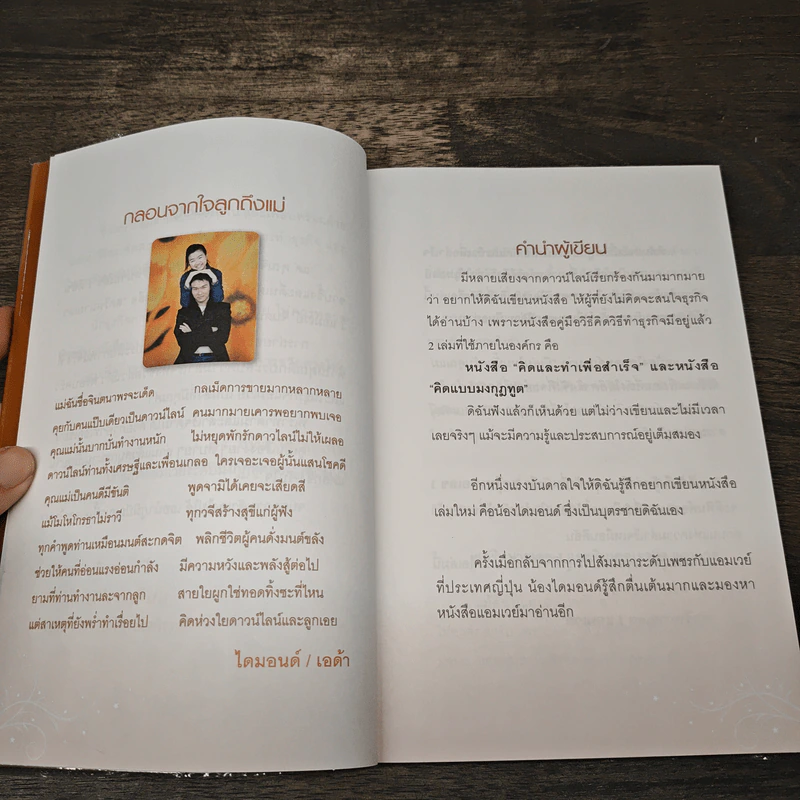 กลอนจากใจลูกถึงแม่
แม่ฉันชื่อจินตนาพรจะเด็ด กลเม็ดการขายมากหลากหลาย
คุยกับคนแป๊บเดียวเป็นดาวน์ไลน์ คนมากมายเคารพอยากพบเจอ
คุณแม่นั้นบากบั่นทำงานหนัก ไม่หยุดพักรักดาวน์ไลน์ไม่ให้เผลอ
ดาวน์ไลน์ท่านทั้งเศรษฐีและเพื่อนเกลอ ใครเจอะเจอผู้นั้นแสนโชคดี
คุณแม่เป็นคนดีมีขันติ พูดจามิได้เคยจะเสียดสี
แม้โมโหโกรธาไม่ราวี ทุกวจีสร้างสุขีแก่ผู้ฟัง
ทุกคำพูดท่านเหมือนมนต์สะกดจิต พลิกชีวิตผู้คนดั่งมนต์ขลัง
ช่วยให้คนที่อ่อนแรงอ่อนกำลัง มีความหวังและพลังสู้ต่อไป
ยามที่ท่านทำงานละจากลูก สายใยผูกใช่ทอดทิ้งซะที่ไหน
แต่สาเหตุที่ยังพร่ำทำเรื่อยไป คิดห่วงใยดาวน์ไลน์และลูกเอย
ไดมอนด์ / เอด้า
คำนำผู้เขียน
มีหลายเสียงจากดาวน์ไลน์เรียกร้องกันมามากมาย
ว่า อยากให้ดิฉันเขียนหนังสือ ให้ผู้ที่ยังไม่คิดจะสนใจธุรกิจ
ได้อ่านบ้าง เพราะหนังสือคู่มือวิธีคิดวิธีทำธุรกิจมีอยู่แล้ว
2 เล่มที่ใช้ภายในองค์กร คือ
หนังสือ "คิดและทำเพื่อสำเร็จ" และหนังสือ
"คิดแบบมงกุฎทูต"
ดิฉันฟังแล้วก็เห็นด้วย แต่ไม่ว่างเขียนและไม่มีเวลา
เลยจริงๆ แม้จะมีความรู้และประสบการณ์อยู่เต็มสมอง
อีกหนึ่งแรงบันดาลใจให้ดิฉันรู้สึกอยากเขียนหนังสือ
เล่มใหม่ คือน้องไดมอนด์ ซึ่งเป็นบุตรชายดิฉันเอง
ครั้งเมื่อกลับจากการไปสัมมนาระดับเพชรกับแอมเวย์
ที่ประเทศญี่ปุ่น น้องไดมอนด์รู้สึกตื่นเต้นมากและมองหา
หนังสือแอมเวย์มาอ่านอีก